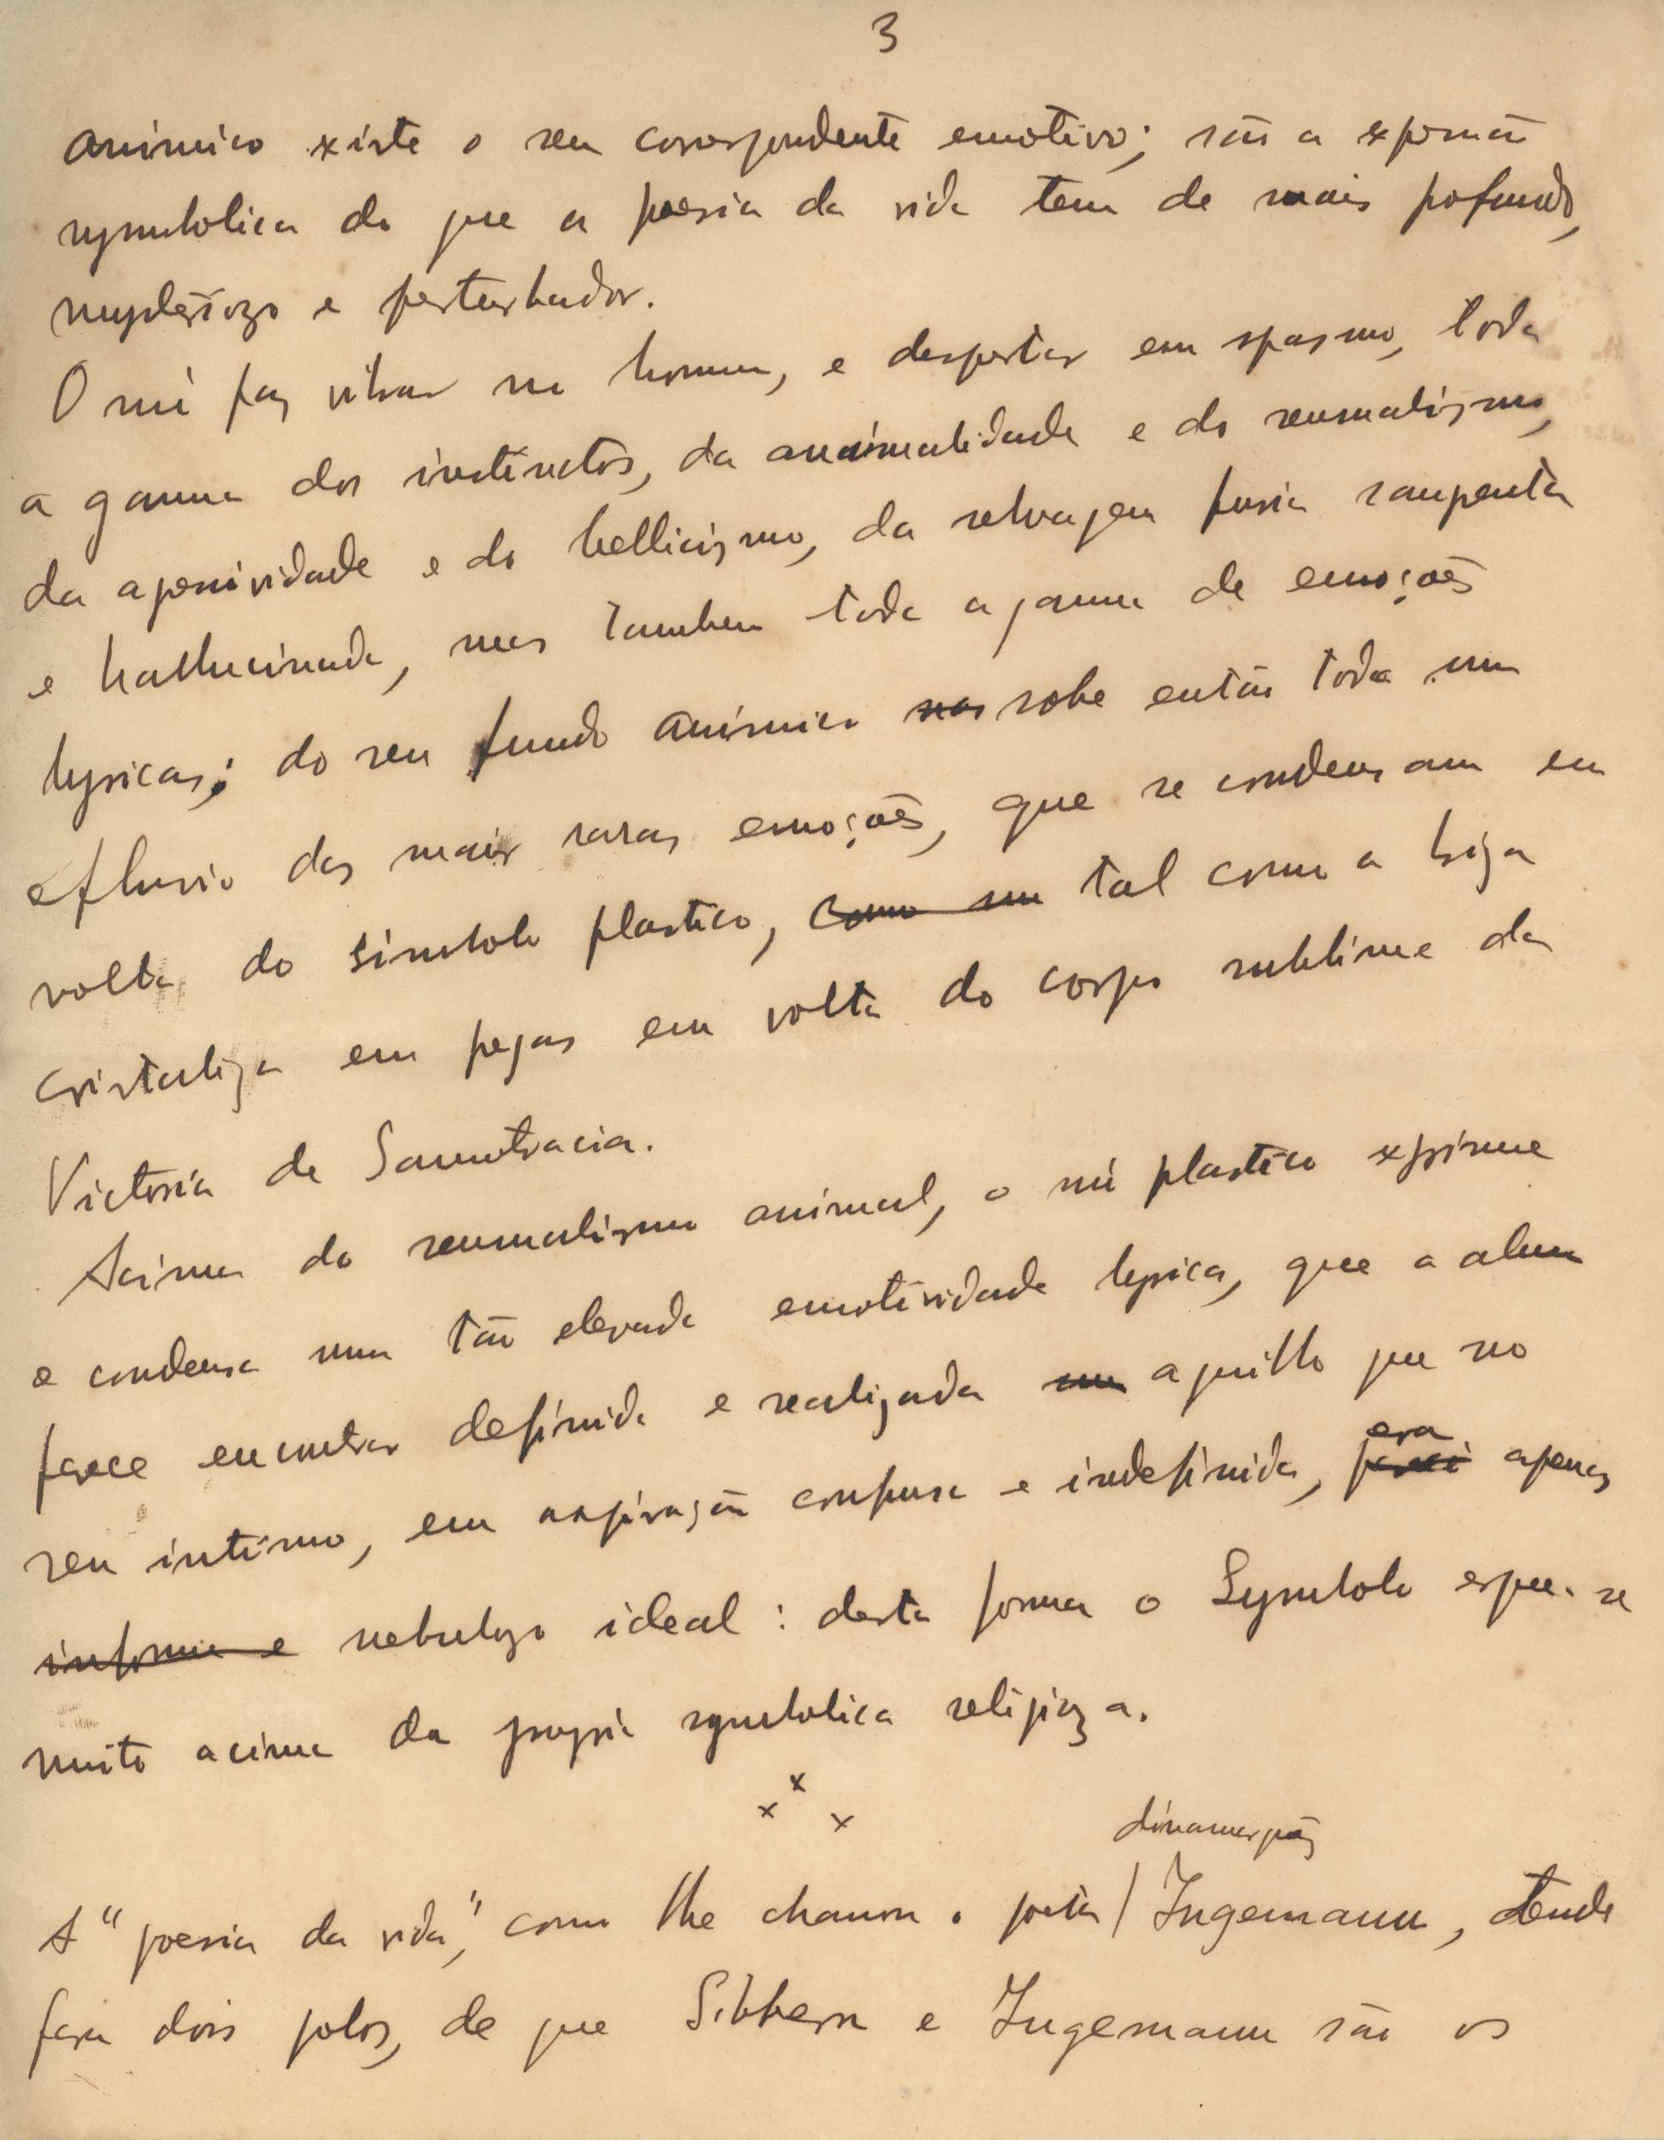 3
animico existe o seu correspondente emotivo; são a expressão
symbolica do que a poesia da vida tem de mais profundo,
mysteriozo e perturbador.
O nú faz vibrar no homem, e despertar em spasmo, toda
a gamma dos instinctos, da animalidade e do sensualismo,
da agressividade e do bellicismo, da selvagem furia sangrenta
e hallucinada, mas tambem toda a gamma de emoções
lyricas; do seu fundo animico nos sobe então todo um
efluvio das mais raras emoções, que se condensam em
volta do simbolo plastico, como um tal como a briza
cristaliza em pregas em volta do corpo sublime da
Victoria de Samotracia.
Acima do sensualismo animal, o nú plastico exprime
e condensa uma tão elevada emotividade lyrica, que a alma
parece encontrar definida e realizada num aquillo que no
seu intimo, em aspiração confusa e indefinida, era
parece apenas
informe e nebulozo ideal: desta forma o Symbolo ergue-se
muito acima da propria symbolica religioza.
x x x
dinamarquêz
A "poesia da vida", como lhe chamou o poeta / Ingemann, tende
para dois polos, de que Sibbern e Ingemann são os